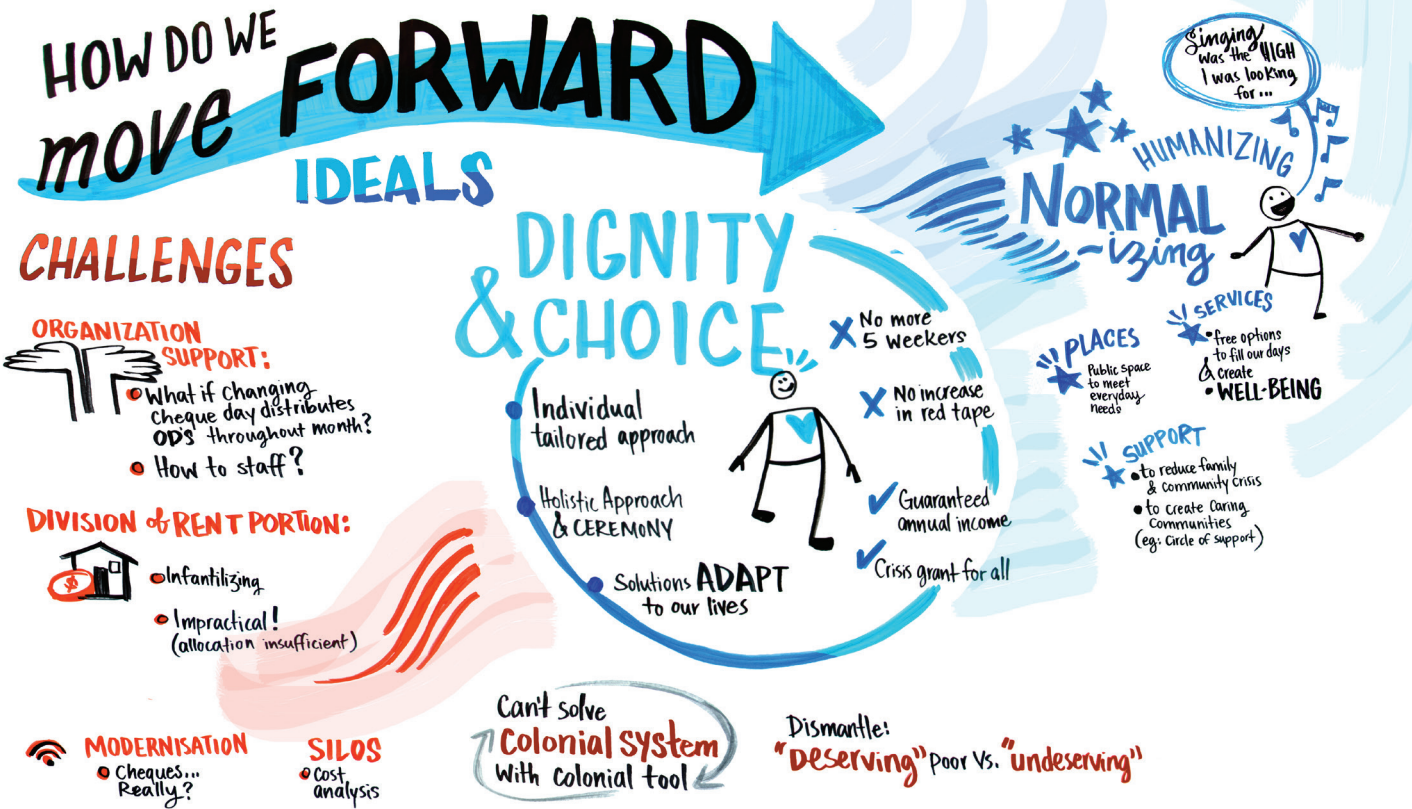 HOW DO WE
move FORWARD
IDEALS
CHALLENGES
ORGANIZATION
SUPPORT:
What if changing
cheque day distributes
OD'S throughout month?
How to staff?
DIVISION of RENT PORTION:
$
Infantilizing
Impractical!
(allocation insufficient)
MODERNISATION
Cheques...
Really?
SILOS
Cost
analysis
DIGNITY
& CHOICE
Individual
tailored approach
Holistic Approach
& CEREMONY
Solutions ADAPT
to our lives
No more
5 weekers
No increase
in red tape
Guaranteed
annual income
Crisis grant for all
Can't solve
Colonial system
With colonial tool
Dismantle:
"Deserving" poor Vs. "undeserving"
Singing
was the HIGH
I was looking
for...
HUMANIZING
NORMAL
-izing
PLACES
Public space
to meet
everyday
needs
SERVICES
free options
to fill our days
& create
WELL-BEING
SUPPORT
to reduce family
& community crisis
to create caring
communities
(eg: Circle of support)